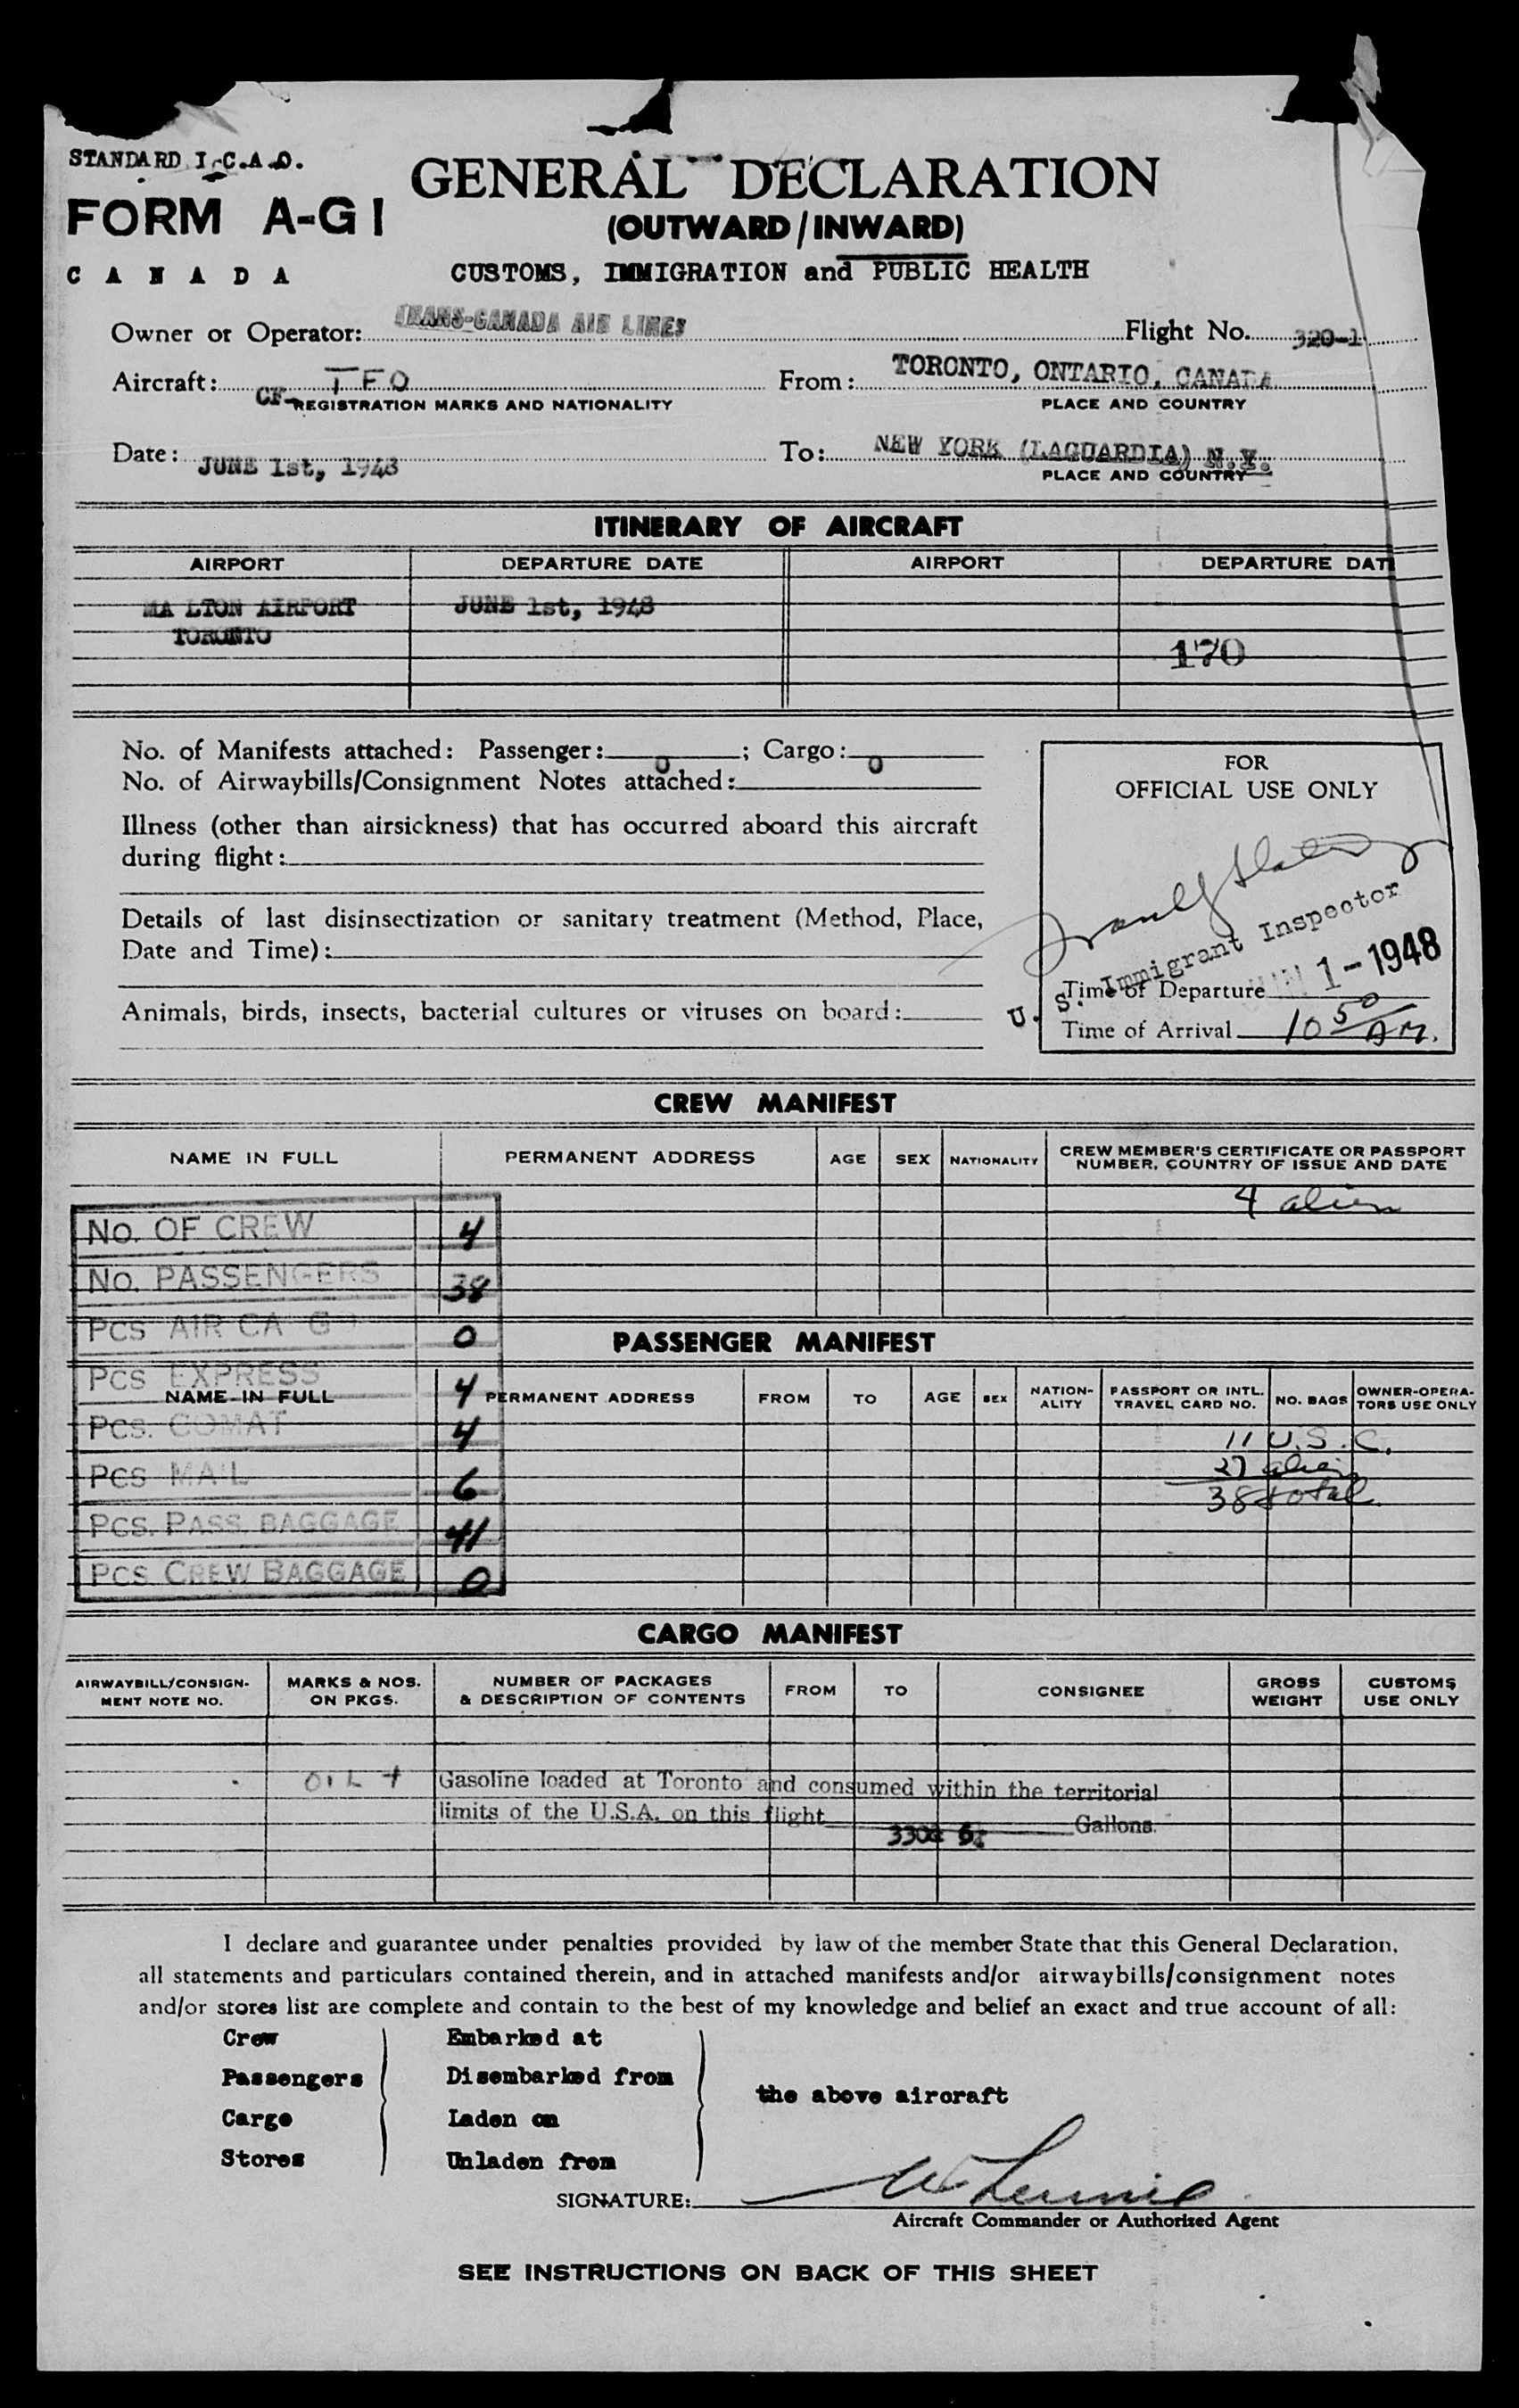 STANDARD I.C.A.O.
FORM A-G1
CANADA
GENERAL DECLARATION
(OUTWARD/INWARD)
CUSTOMS, IMMIGRATION and PUBLIC HEALTH
Owner or Operator: TRANS-CANADA AIR LINES Flight No. 320-1
Aircraft: CF- T F O From: TORONTO, ONTARIO, CANADA
REGISTRATION MARKS AND NATIONALITY PLACE AND COUNTRY
Date: JUNE 1st, 1948 To: NEW YORK (LAGUARDIA) N.Y.
PLACE AND COUNTRY
ITINERARY OF AIRCRAFT
AIRPORT DEPARTURE DATE AIRPORT DEPARTURE DAT
MALTON AIRPORT JUNE 1st, 1948
TORONTO
170
No. of Manifests attached: Passenger: 0; Cargo: 0
No. of Airwaybills/Consignment Notes attached:
Illness (other than airsickness) that has occurred aboard this aircraft
during flight:
Details of last disinsectization or sanitary treatment (Method, Place,
Date and Time):
Animals, birds, insects, bacterial cultures or viruses on board:
FOR
OFFICIAL USE ONLY
U. S. Immigrant Inspector
JUN 1-1948
Time of Departure
Time of Arrival 10 50/AM.
CREW MANIFEST
NAME IN FULL PERMANENT ADDRESS AGE SEX NATIONALITY CREW MEMBER'S CERTIFICATE OR PASSPORT
NUMBER, COUNTRY OF ISSUE AND DATE
4 alien
No. OF CREW 4
No. PASSENGERS 38
PCS AIR CA GO 0
PCS EXPRESS 4
PCS. COMAT 4
PCS MAIL 6
PCS. PASS. BAGGAGE 41
PCS CREW BAGGAGE 0
PASSENGER MANIFEST
NAME IN FULL PERMANENT ADDRESS FROM TO AGE SEX NATION-ALITY PASSPORT OR INTL. TRAVEL CARD NO. NO. BAGS OWNER-OPERA-TORS USE ONLY
11 U.S.C.
27 alien
38 total
CARGO MANIFEST
AIRWAYBILL/CONSIGN-MENT NOTE NO. MARKS & NOS. ON PKGS. NUMBER OF PACKAGES & DESCRIPTION OF CONTENTS FROM TO CONSIGNEE GROSS WEIGHT CUSTOMS USE ONLY
OIL + Gasoline loaded at Toronto and consumed within the territorial
limits of the U.S.A. on this flight Gallons.
I declare and guarantee under penalties provided by law of the member State that this General Declaration,
all statements and particulars contained therein, and in attached manifests and/or airwaybills/consignment notes
and/or stores list are complete and contain to the best of my knowledge and belief an exact and true account of all:
Crew Embarked at
Passengers Disembarked from
the above aircraft
Cargo Laden on
Stores Unladen from
SIGNATURE:
Aircraft Commander or Authorized Agent
SEE INSTRUCTIONS ON BACK OF THIS SHEET